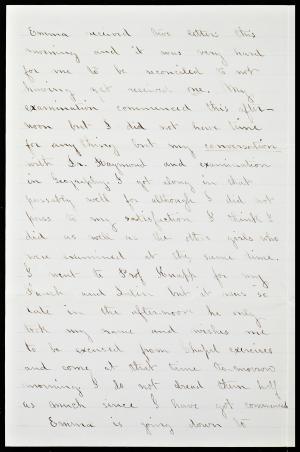 Emma received five letters this
morning and it was very hard
for me to be reconciled to not
having yet received one. My
examination commenced this after-
noon but I did not have time
for anything but my conversation
with Dr. Raymond and examination
in Geography. I got along in that
passably well for although I did not
pass to my satisfaction I think I
did as well as the other girls who
were examined at the same time.
I went to Prof Knapp for my
French and Latin but it was so
late in the afternoon he only
took my name and wishes me
to be excused from chapel exercises
and come at that time to-morrow
morning. I do not dread them half
as much since I have got commenced
Emma is going down to